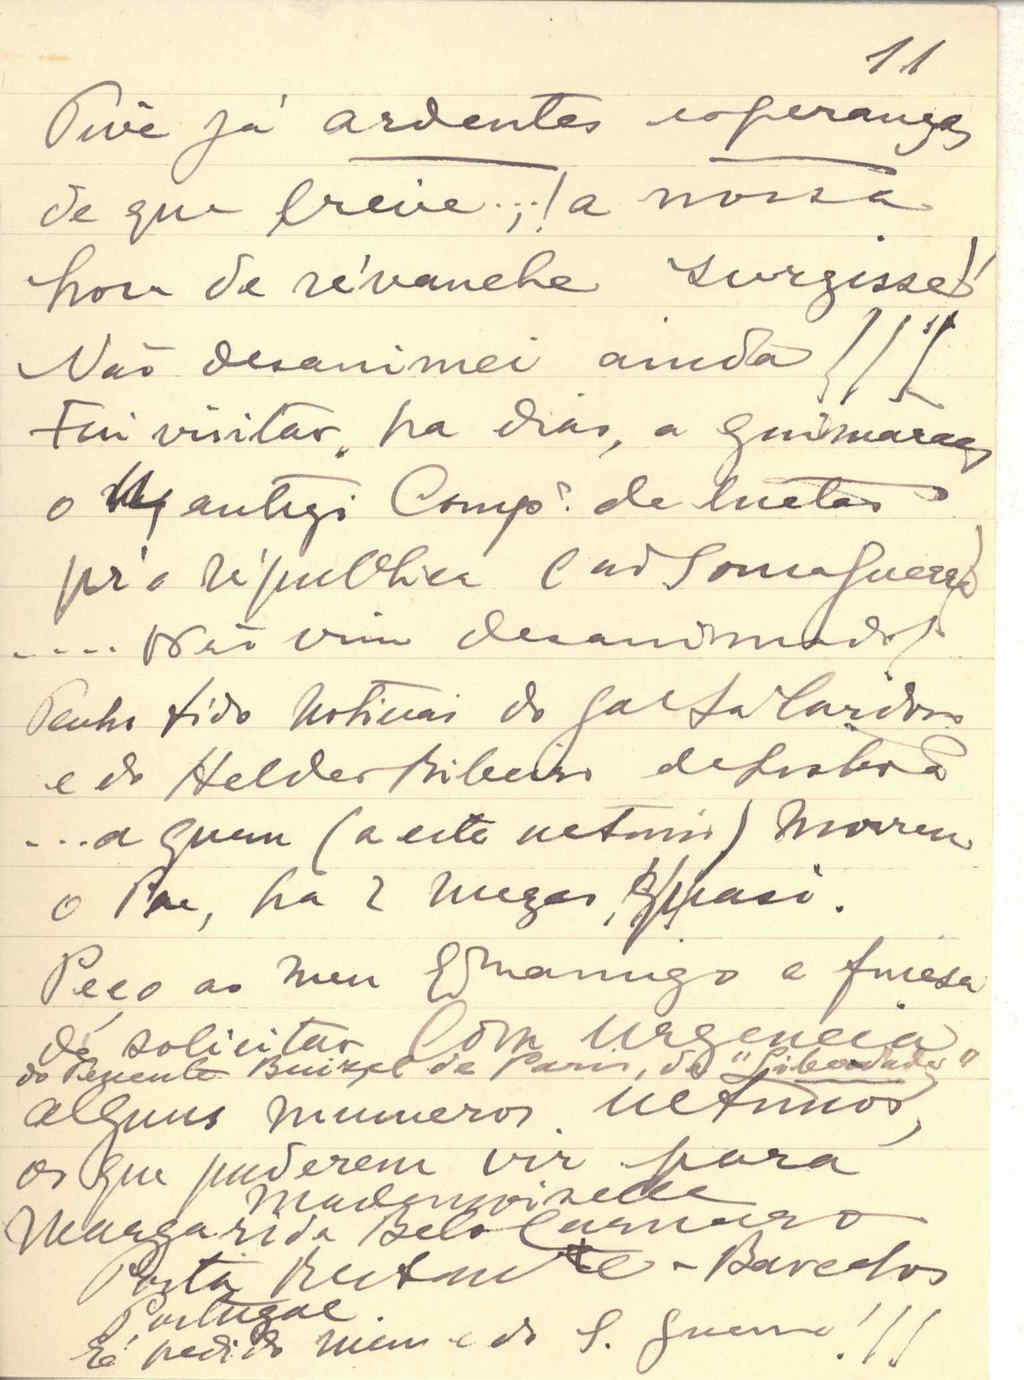 11
Tive já ardentes esperanças
de que breve...,! a nossa
hora de révanche surgisse!
Não desanimei ainda!!!
Fui visitar, ha dias, a Guimarães
o antigo Compº. de luctas
pr'a républica Cad Soma Guerra
.... Não vim desanimado!
Tenho tido noticias do Gal Sá Cardoso
e do Helder Ribeiro de Lisboa
...a quem (a este ultimo) morreu
o Pae, ha 2 mezes, quasi.
Peço ao meu Exmo amigo a finesa
de solicitar com urgencia
do Tenente Buizel de Paris, da "Liberdade"
alguns numeros ultimos,
os que puderem vir para
Mademoiselle
Margarida Belo Carneiro
Posta Restante - Barcelos
Portugal
É pedido meu e do S. Guerra!!!